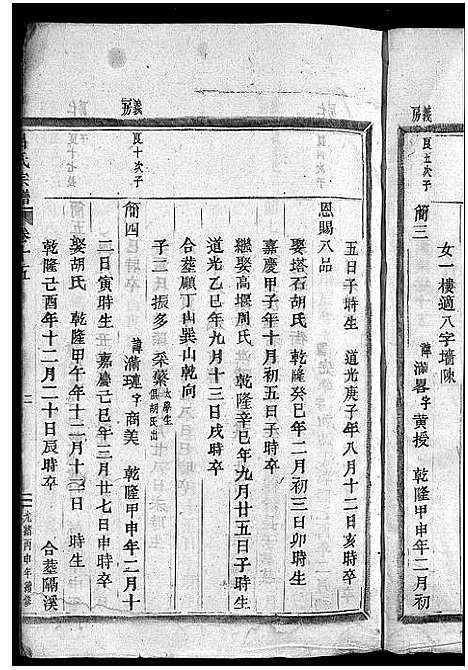 義房
良五次子
女一樓適八字墻陳
簡三
諱滿畧字黄授 乾隆甲申年二月初
五日子時生 道光庚子年八月十二日亥時卒
恩賜八品
娶塔石胡氏 乾隆癸巳年二月初三日卯時生
嘉慶甲子年十月初五日子時卒
繼娶高堰周氏 乾隆辛巳年九月廿五日子時生
道光乙巳年九月十三日戌時卒
合塟顧丁山巽山乾向
子三 振多 采 采繁 太學生 俱胡氏出
義房
良十次子
簡四
諱滿璉字商美 乾隆甲申年二月十
二日寅時生 嘉慶己巳年三月廿七日申時卒
娶胡氏 乾隆甲午年十二月十三日 時生
乾隆己酉年十二月二十日辰時卒 合塟隔溪
氏宗譜
卷十五
二
光緒丙申年續修